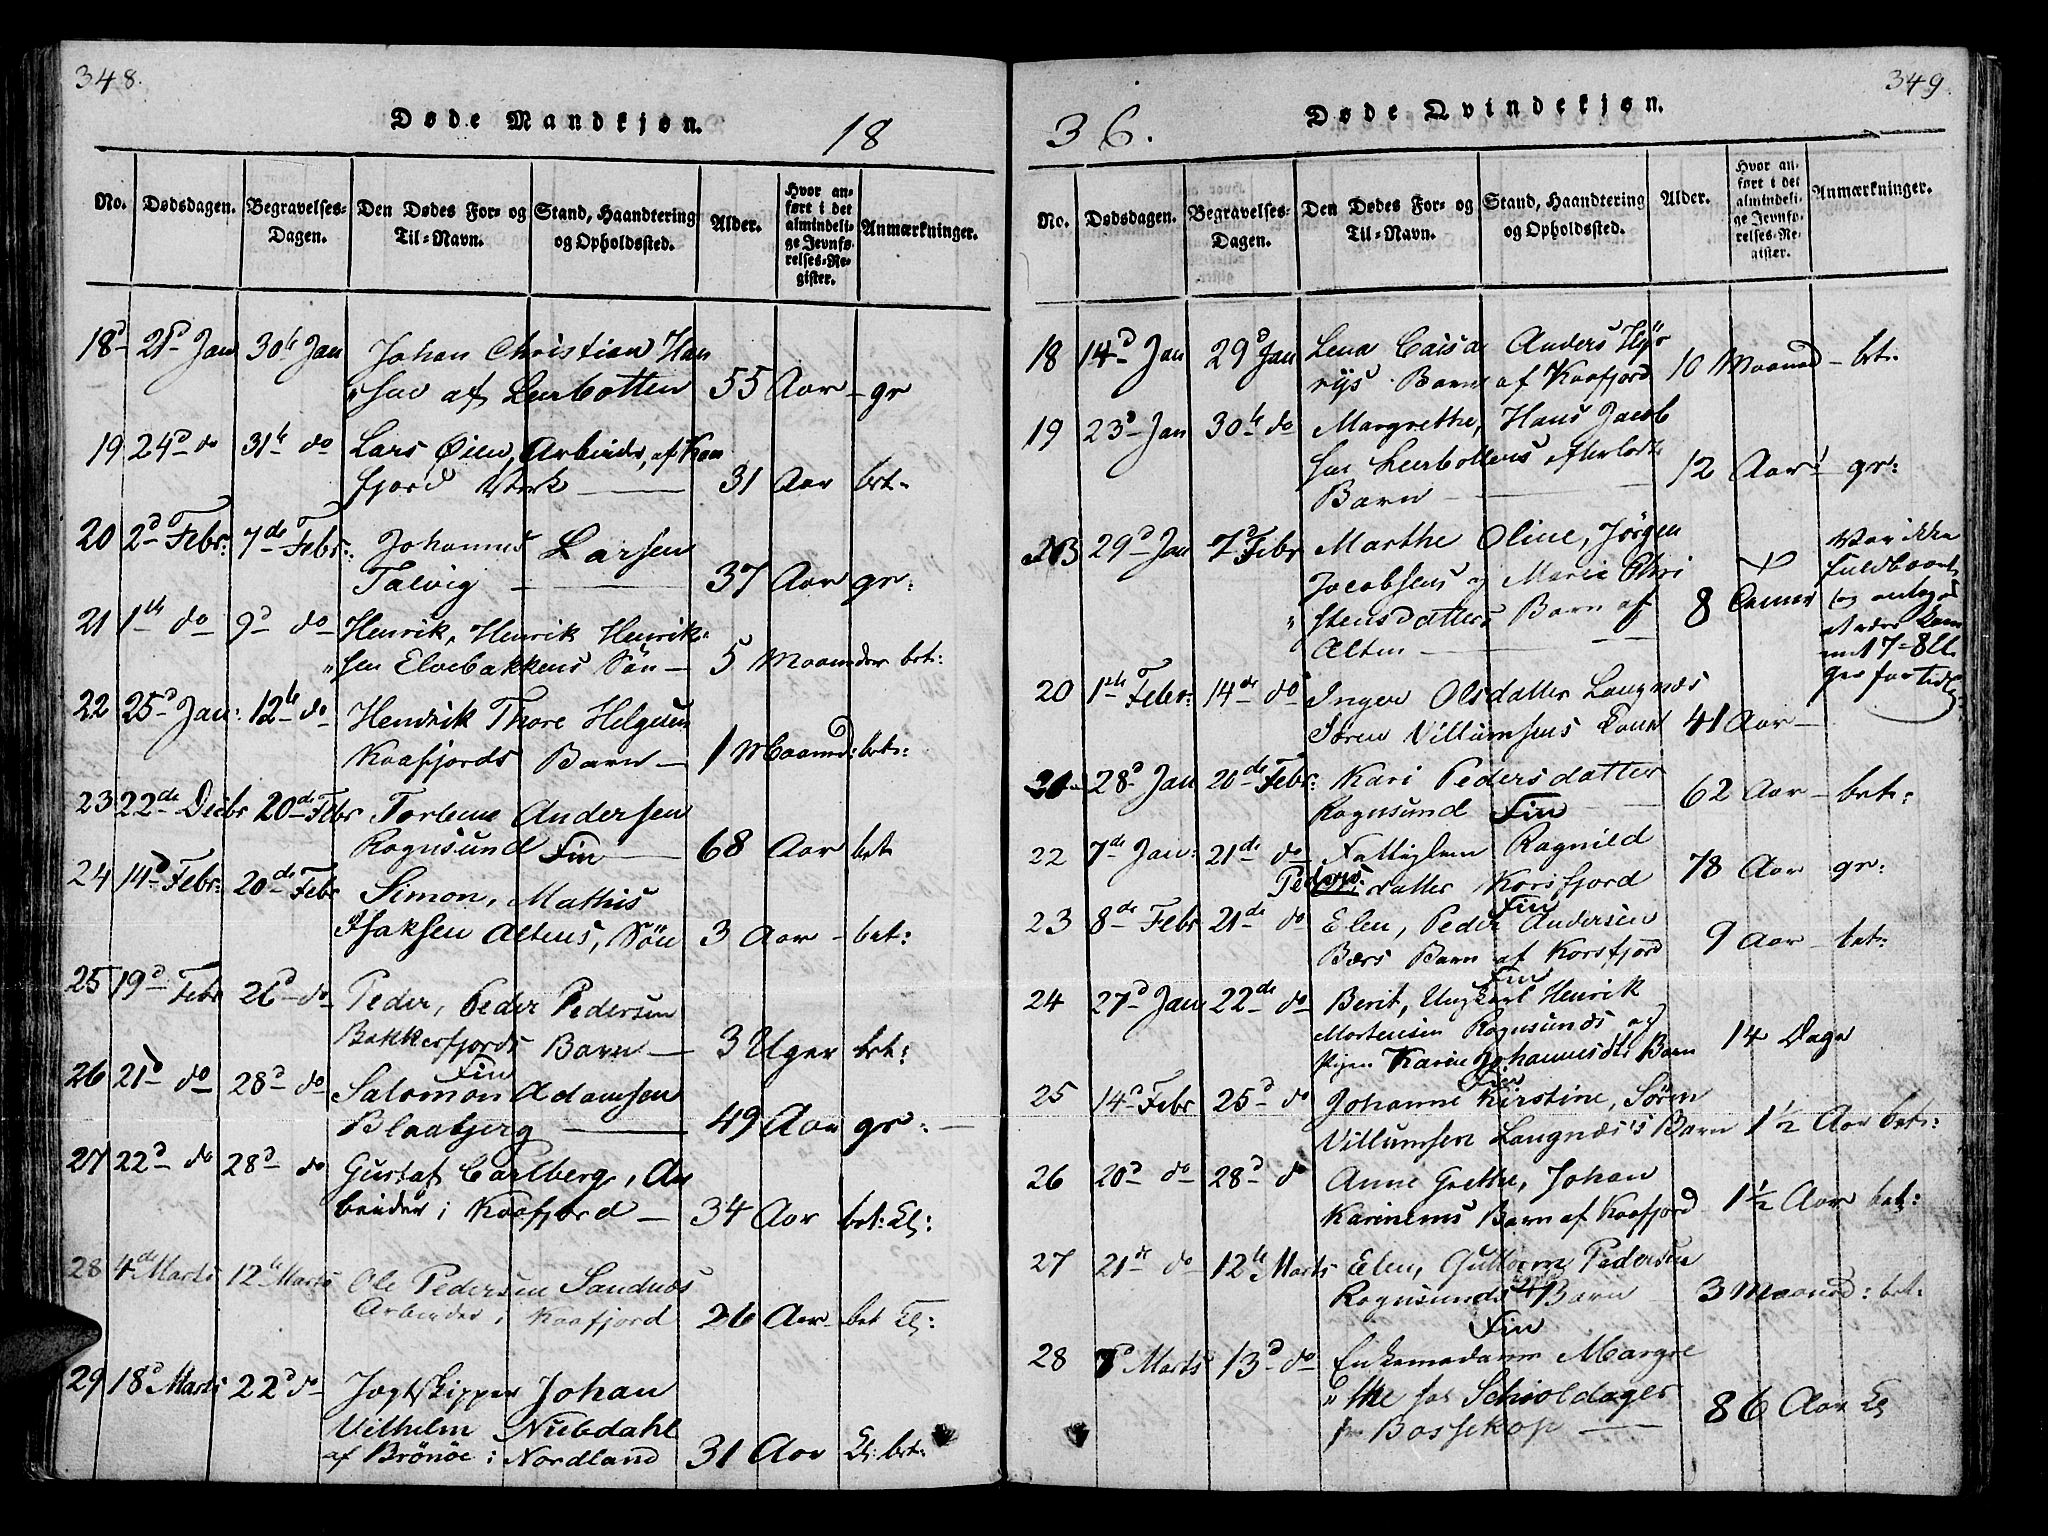 348.
Døde Mandkjøn.
18
No.
Dødsdagen.
Begravelses-
Dagen.
Den Dødes For- og
Til-Navn.
Stand, Haandtering
og Opholdssted.
Alder.
Hvor an-
ført i det
almindeli-
ge Jevnfø-
relses-Re-
gister.
Anmærkninger.
18 21d Jan 30te Jan Johan Christian Han
"sen af Leerbotten 55 Aar - gr
19 24d do 31te do Lars Øien, Arbeider, af Kaa
fjord Værk 31 Aar bet.
20 2d Febr: 7de Febr: Johannes Larsen
Talvig 37 Aar gr:
21 1ste do 9d do Henrik, Henrik Henrik-
"sen Elvebakkens Søn 5 Maaneder bet:
22 25d Jan: 12te do Hendrik Thore Helgesen
Kaafjords Barn 1 Maaned: bet:
23 22de Decbr 20de Febr Torbene Andersen
Rognsund Fin 68 Aar bet
24 14d Febr: 20de Febr Simon, Mathis
Isaksen Altens, Søn 3 Aar - bet:
25 19d Febr 26d do Peder, Peder Pedersen
Bekkerfjords Barn 3 Uger bet:
Fin
26 21d do 28d do Salomon Adamsen
Blaabjerg 49 Aar gr:
27 22d do 28d do Gustaf Carlberg, Ar
beider i Kaafjord 34 Aar bet: El:
28 4de Marts 12te Marts Ole Pedersen Sandnæs
Arbeider i Kaafjord 26 Aar bet El:
29 18d Marts 22d do Jogtskipper Johan
Vilhelm Nubdahl
af Brönöe i Nordland 31 Aar El: bet:
349.
Døde Qvindekjøn.
36.
No.
Dødsdagen.
Begravelses-
Dagen.
Den Dødes For- og
Til-Navn.
Stand, Haandtering
og Opholdssted.
Alder.
Hvor an-
ført i det
almindeli-
ge Jevnfø-
relses-Re-
gister.
Anmærkninger.
18 14d Jan 29d Jan Lena Caisa Anders Hyö
rys Barn af Kaafjord 10 Maaned - bet:
19 23d Jan 30te do Margrethe, Hans Jacob
sen Leerbottens efterladte
Barn 12 Aar gr:
NB 29d Jan 7d Febr Marthe Oline, Jørgen
Jacobsens og Marie Chri
"stensdatters Barn af
Alten 8
Var ikke
fuldbaaret
og
at være kom
met 7-8
ger for tidlig
20 1ste Febr: 14de do Inger Olsdatter Langnæs
Søren Villumsens Kone 41 Aar -
21 28d Jan 20de Febr: Kari Pedersdatter
Rognsund Fin 62 Aar - bet:
22 7de Jan: 21de do Ragnild
Peders: datter Korsfjord 78 Aar gr:
Fin
23 8de Febr 21de do Elen, Peder Andersen
Bærs Barn af Korsfjord 9 Aar - bet:
Fin
24 27d Jan 22de do Berit, Ungkarl Henrik
Mortensen Rognsunds og
Pigen Karen Johannesdtr Barn 14 Dage
Fin
25 14d Febr 25d do Johanne Kirstine, Søren
Villumsen Langnæs's Barn 1½ Aar bet:
26 20d do 28d do Anne Grethe, Johan
Karinems Barn af Kaafjord 1½ Aar bet:
27 21de do 12te Marts Elen, Guttorm Pedersen
Rognsunds Barn 3 Maaned: bet:
Fin
28 7d Marts 13d do Enkemadame Margre
"the Schioldager
Bossekop 86 Aar El